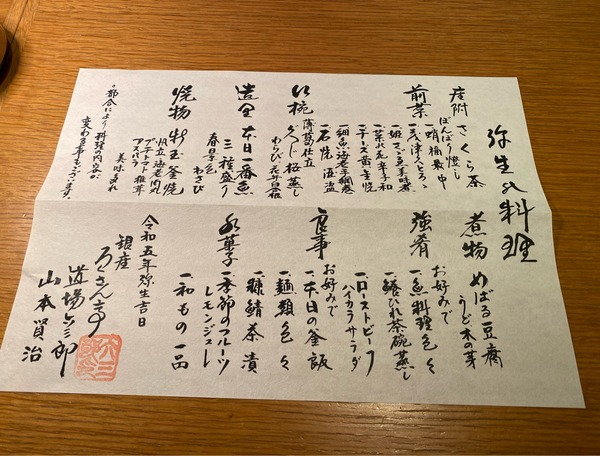 弥生の料理
座附 さくら茶
ぼんぼり燈し
一、蛸桶 最中
前菜
一、チーズ黄金焼
一、細魚海老手綱巻
一、石焼海盗
吸椀 薄葛仕立
ぐじ桜蒸し
わらび
造里 本日一番魚
三種盛り
春日景色 わさび
焼物 新玉釜焼
帆立 海老 肉丸
プチトマト 椎茸
アスパラ
美味だれ
◦都合により料理の内容が
変わる事もございます。
煮物 めばる豆腐
うど 木の芽
強肴 お好みで
一、魚料理色々
一、鱶ひれ茶碗蒸し
一、ローストビーフ
ハイカラサラダ
食事 お好みで
一、本日の釜飯
一、麺類色々
一、糠鯖茶漬
水菓子 一、季節のフルーツ
レモンジュレ
一、和もの一品
令和五年弥生吉日
銀座
ろくさん亭
道場六三郎
山本賢治